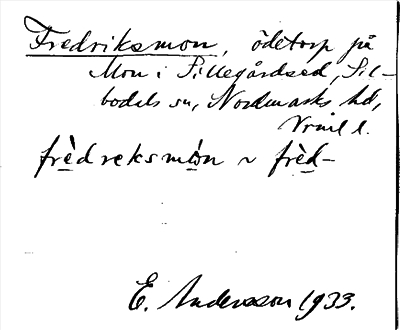 Fredriksmon, ödetorp på
Mon i Sillegårdsed, Sil-
bodals sn, Nordmarks hd,
Vrml l.
frèdreksmòn ~ frèd-
E. Andersson 1933.